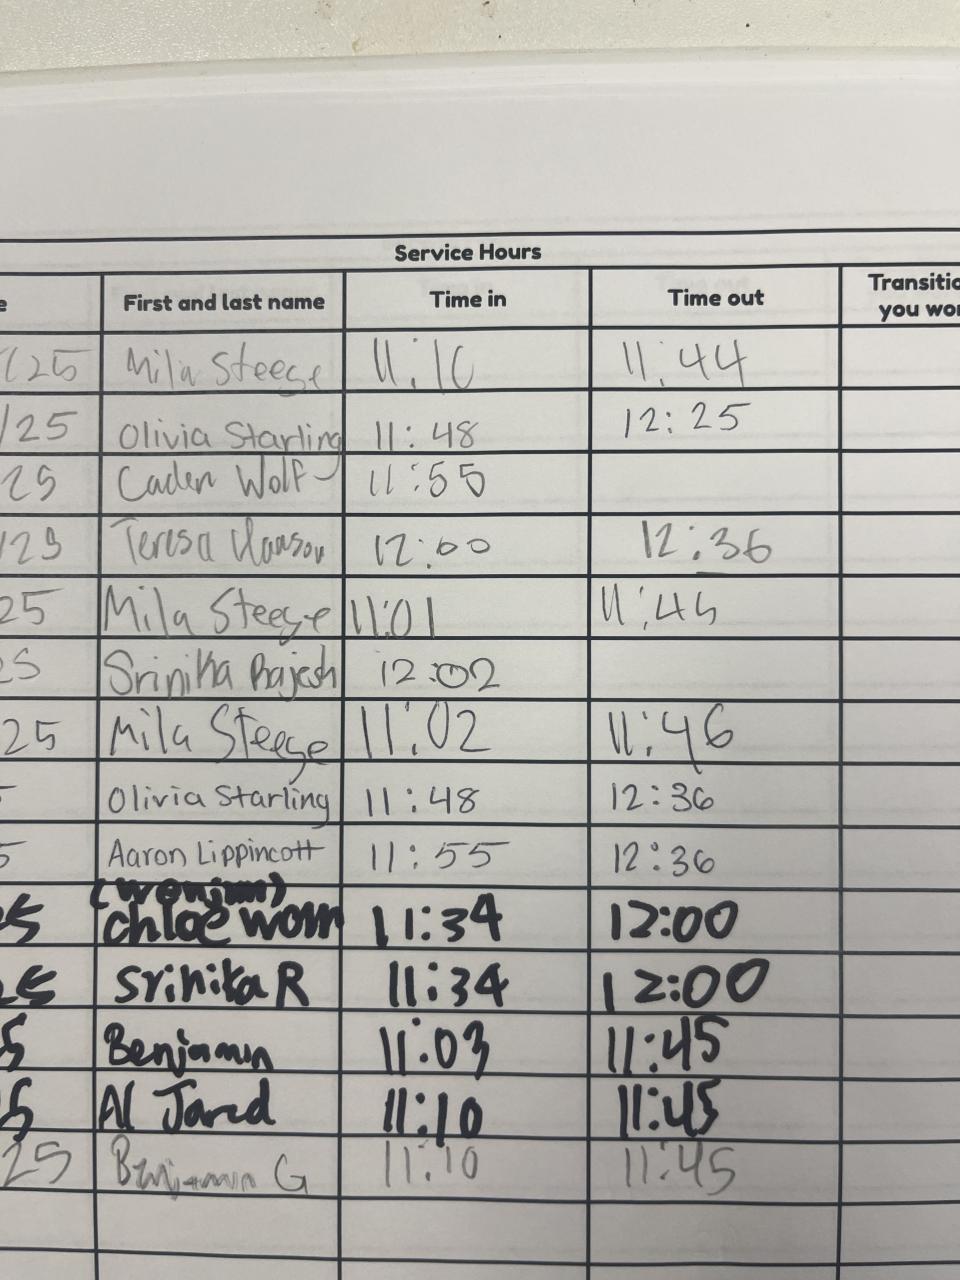 Service Hours
e First and last name Time in Time out Transitio
you wor
/25 Mila Steege 11:10 11:44
/25 Olivia Starling 11:48 12:25
25 Caden Wolf 11:55
/25 Teresa 12:00 12:36
25 Mila Steege 11:01 11:45
25 Srinika Rajesh 12:02
25 Mila Steege 11:02 11:46
Olivia Starling 11:48 12:36
5 Aaron Lippincott 11:55 12:36
25 chloe wom 11:34 12:00
25 Srinika R 11:34 12:00
5 Benjamin 11:03 11:45
5 Al Jared 11:10 11:45
25 Benjamin G 11:10 11:45